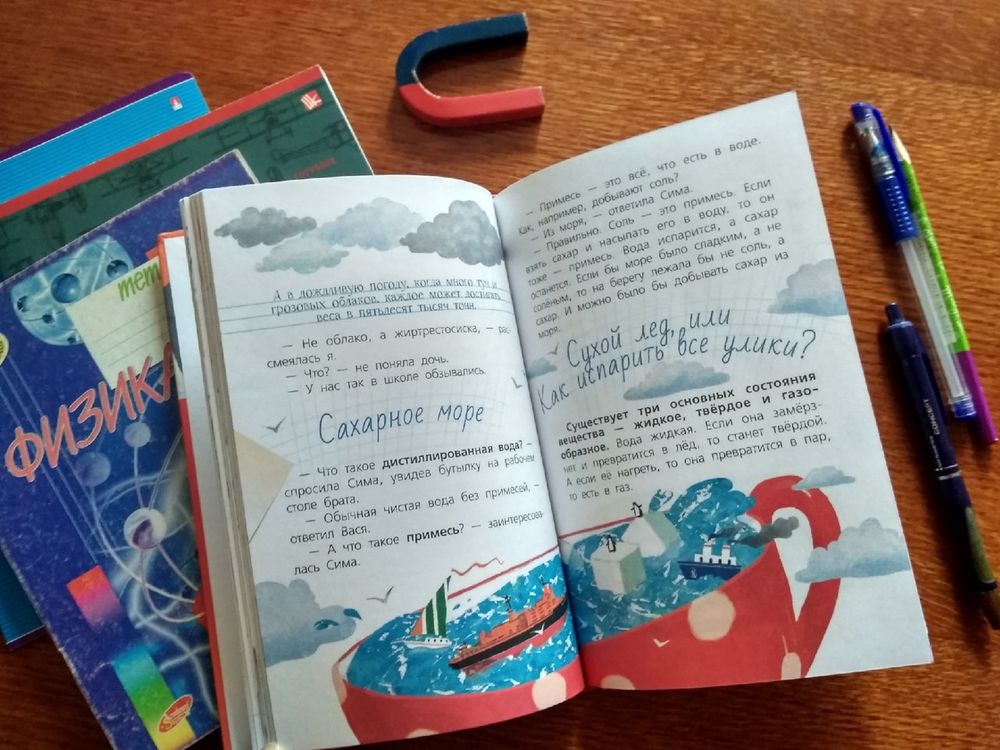 А в дождливую погоду, когда много туч и
грозовых облаков, каждое может достигать
веса в пятьдесят тысяч тонн.
— Не облако, а жиртрестосиска, — рас-
смеялась я.
— Что? — не поняла дочь.
— У нас так в школе обзывались.
Сахарное море
— Что такое дистиллированная вода? —
спросила Сима, увидев бутылку на рабочем
столе брата.
— Обычная чистая вода без примесей, —
ответил Вася.
— А что такое примесь? — заинтересова-
лась Сима.
— Примесь — это всё, что есть в воде.
Как, например, добывают соль?
— Из моря, — ответила Сима.
— Правильно. Соль — это примесь. Если
взять сахар и насыпать его в воду, то он
тоже — примесь. Вода испарится, а сахар
останется. Если бы море было сладким, а не
солёным, то на берегу лежала бы не соль, а
сахар. И можно было бы добывать сахар из
моря.
Сухой лед, или
Как испарить все улики?
Существует три основных состояния
вещества — жидкое, твёрдое и газо-
образное. Вода жидкая. Если она замёрз-
нет и превратится в лёд, то станет твёрдой.
А если её нагреть, то она превратится в пар,
то есть в газ.
тет
ФИЗИКА
CONCEPT